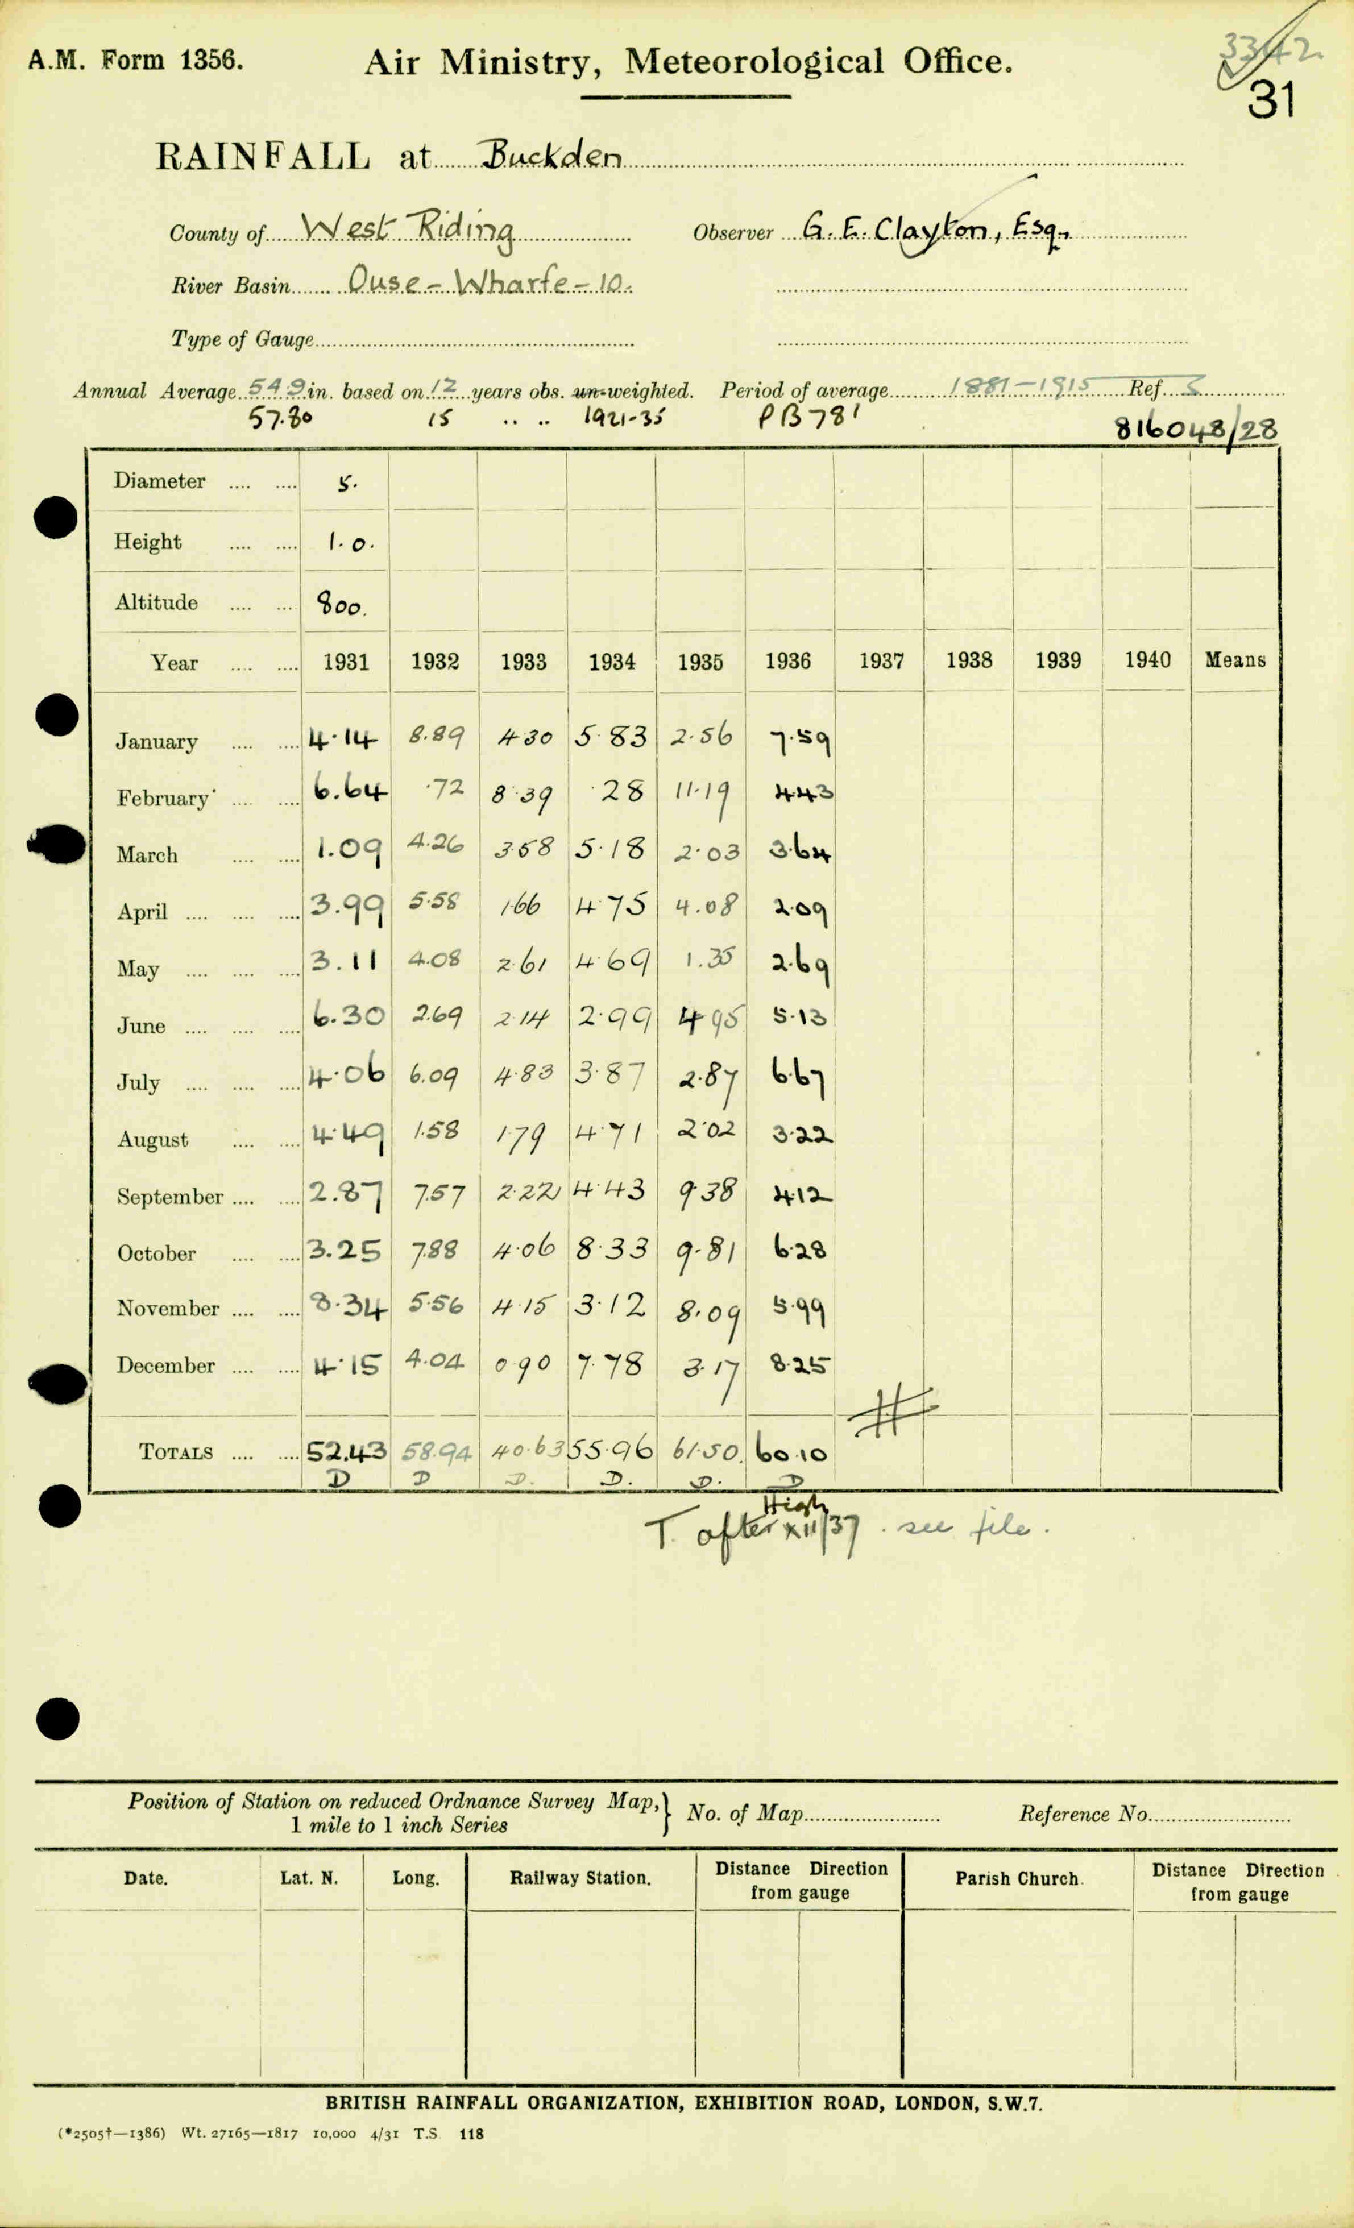 A.M. Form 1356.
Air Ministry, Meteorological Office.
3342
31
RAINFALL at Buckden
County of West Riding Observer G. E. Clayton, Esq.,
River Basin Ouse – Wharfe – 10.
Type of Gauge
Annual Average 54.9 in. based on 12 years obs. un-weighted. Period of average 1881–1915 Ref. S
57.80 15 .. .. 1921-35 PB781
816048/28
Diameter 5.
Height 1.0.
Altitude 800.
Year 1931 1932 1933 1934 1935 1936 1937 1938 1939 1940 Means
January 4.14 8.89 4.30 5.83 2.56 7.59
February 6.64 .72 8.39 .28 11.19 4.43
March 1.09 4.26 3.58 5.18 2.03 3.64
April 3.99 5.58 1.66 4.75 4.08 2.09
May 3.11 4.08 2.61 4.69 1.35 2.69
June 6.30 2.69 2.14 2.99 4.95 5.13
July 4.06 6.09 4.83 3.87 2.87 6.67
August 4.49 1.58 1.79 4.71 2.02 3.22
September 2.87 7.57 2.22 4.43 9.38 4.12
October 3.25 7.88 4.06 8.33 9.81 6.28
November 8.34 5.56 4.15 3.12 8.09 5.99
December 4.15 4.04 0.90 7.78 3.17 8.25
TOTALS 52.43 58.94 40.63 55.96 61.50. 60.10
D D D. D. D. D
High
T. after XII/37. see file.
Position of Station on reduced Ordnance Survey Map, } No. of Map Reference No.
1 mile to 1 inch Series
Date. Lat. N. Long. Railway Station. Distance Direction Parish Church. Distance Direction
from gauge from gauge
BRITISH RAINFALL ORGANIZATION, EXHIBITION ROAD, LONDON, S.W.7.
(*2505†—1386) Wt. 27165—1817 10,000 4/31 T.S. 118